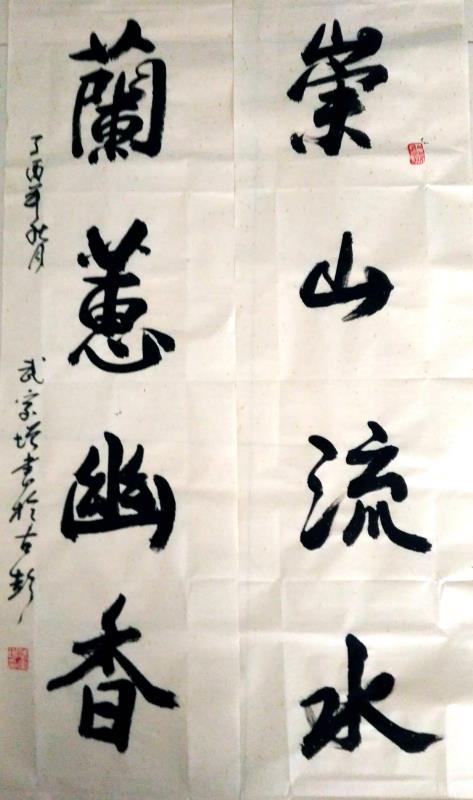 崇山流水
蘭蕙幽香
丁酉年秋月
武宗書於古彭